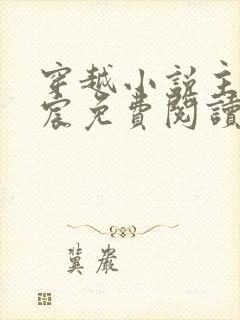 穿越小說主
宸免費閱讀
冀嚴